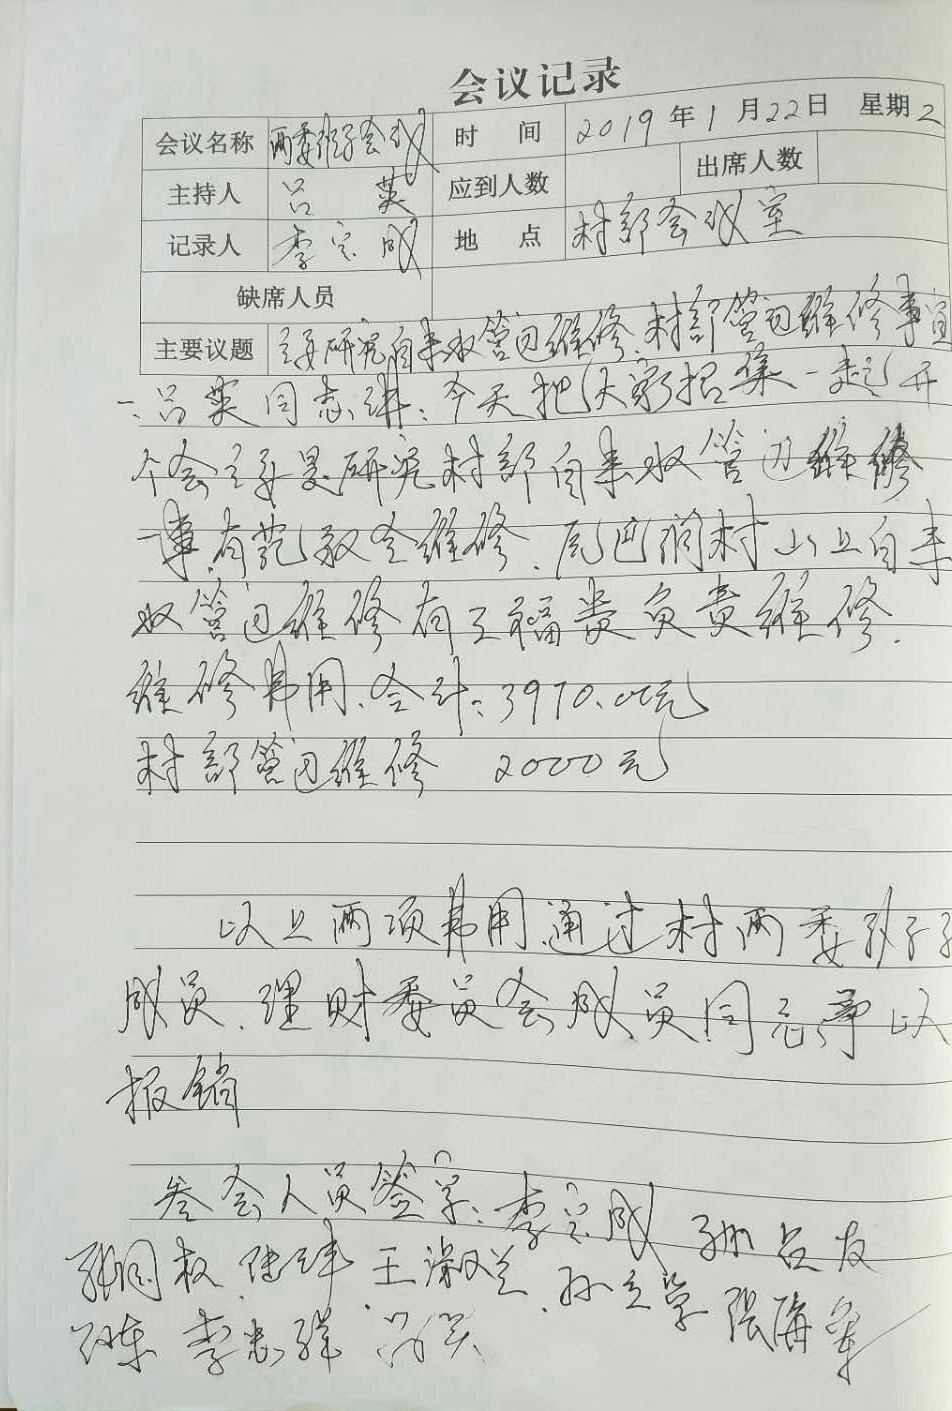 会议记录
会议名称 两委班子会议 时间 2019年1月22日 星期2
主持人 吕英 应到人数 出席人数
记录人 李宗成 地点 村部会议室
缺席人员
主要议题 主要研究自来水管道维修、村部管道维修事宜
一、吕英同志讲：今天把大家招集一起开
个会主要是研究村部自来水管道维修
一事,有 维修、 村山上自来
水管道维修有王福贵负责维修.
维修费用、合计：3970.00元
村部管道维修 2000元
以上两项费用通过村两委班子
成员、理财委员会成员同意予以
报销
参会人员签字：李宗成 孙占友
张国权 王淑兰 孙立学 张海军
李忠祥 吕英